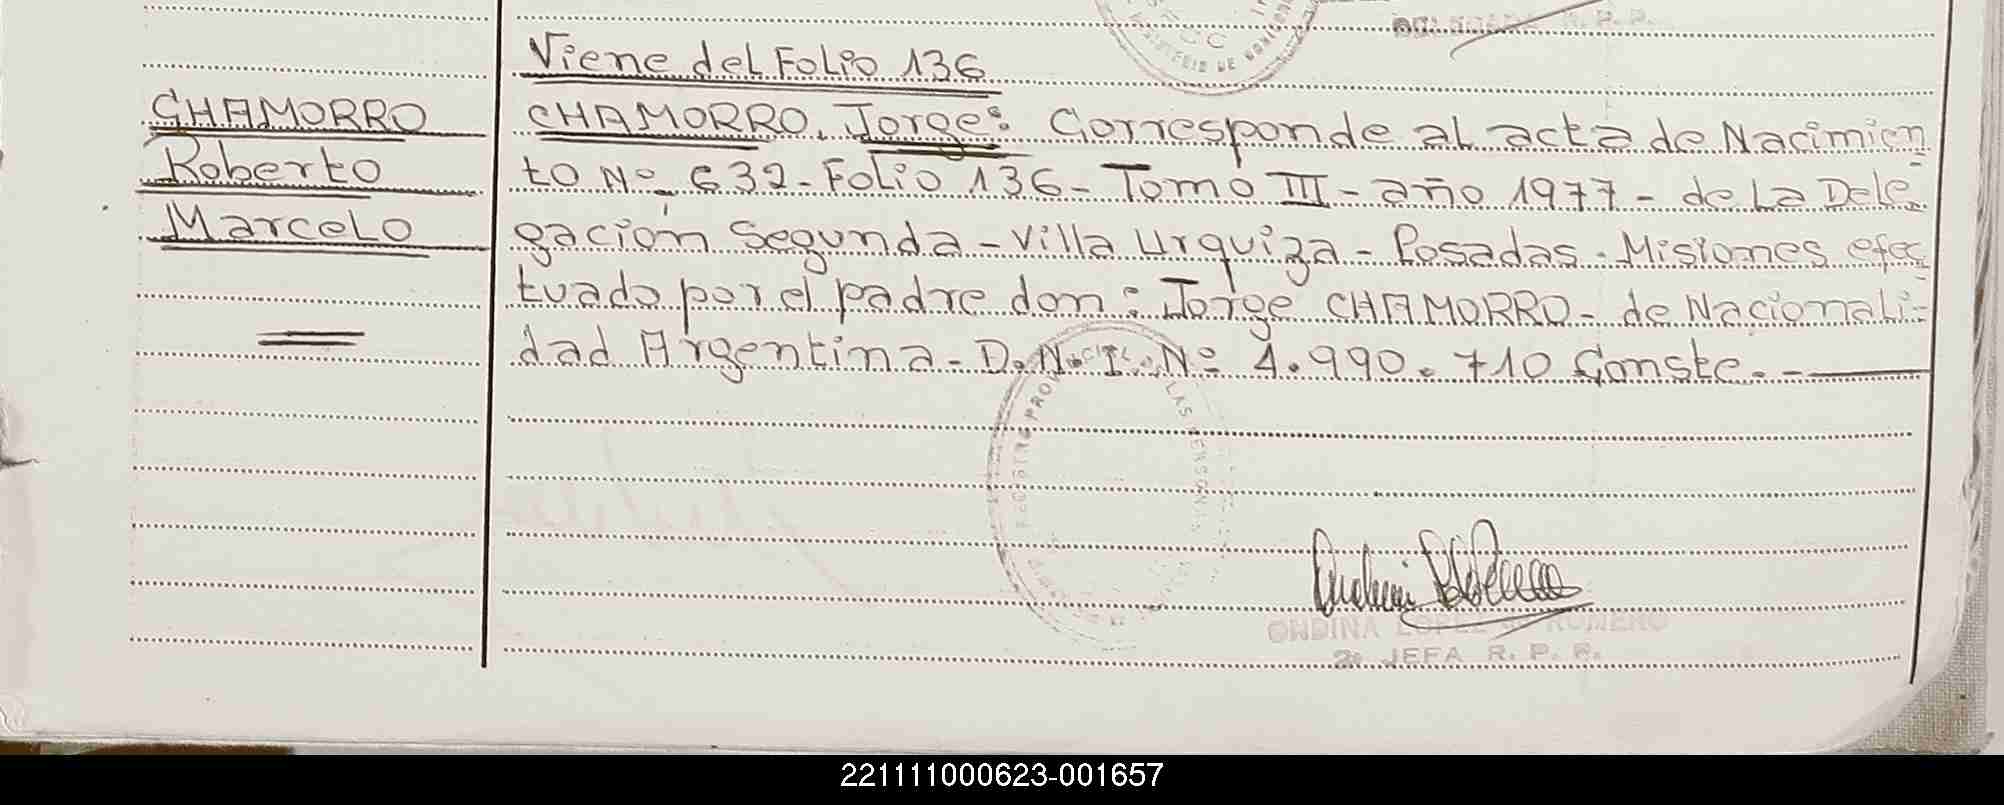 Viene del Folio 136
CHAMORRO
Roberto
Marcelo
CHAMORRO, Jorge: Corresponde al acta de Nacimien
to Nº 632 - Folio 136 - Tomo III - año 1977 - de la Dele
gación Segunda - Villa Urquiza - Posadas. Misiones efec
tuado por el padre don: Jorge CHAMORRO - de Nacionali-
dad Argentina - D.N.I. Nº 4.990.710 Conste.-
ONDINA LOPEZ de ROMERO
2º JEFA R. P. P.
221111000623-001657